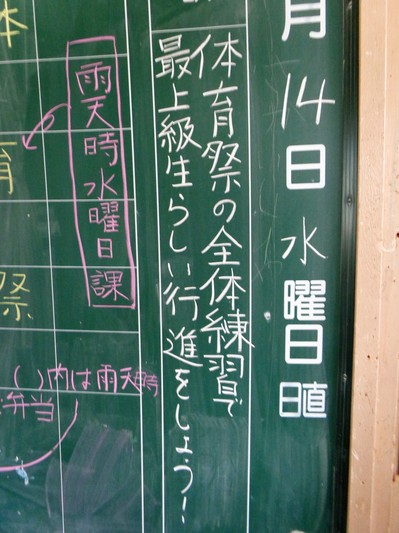 月14日水曜日
日直
体育祭の全体練習で
最上級生らしい行進をしょう!
雨天時水曜日課
( )内は雨天時
弁当
育
祭